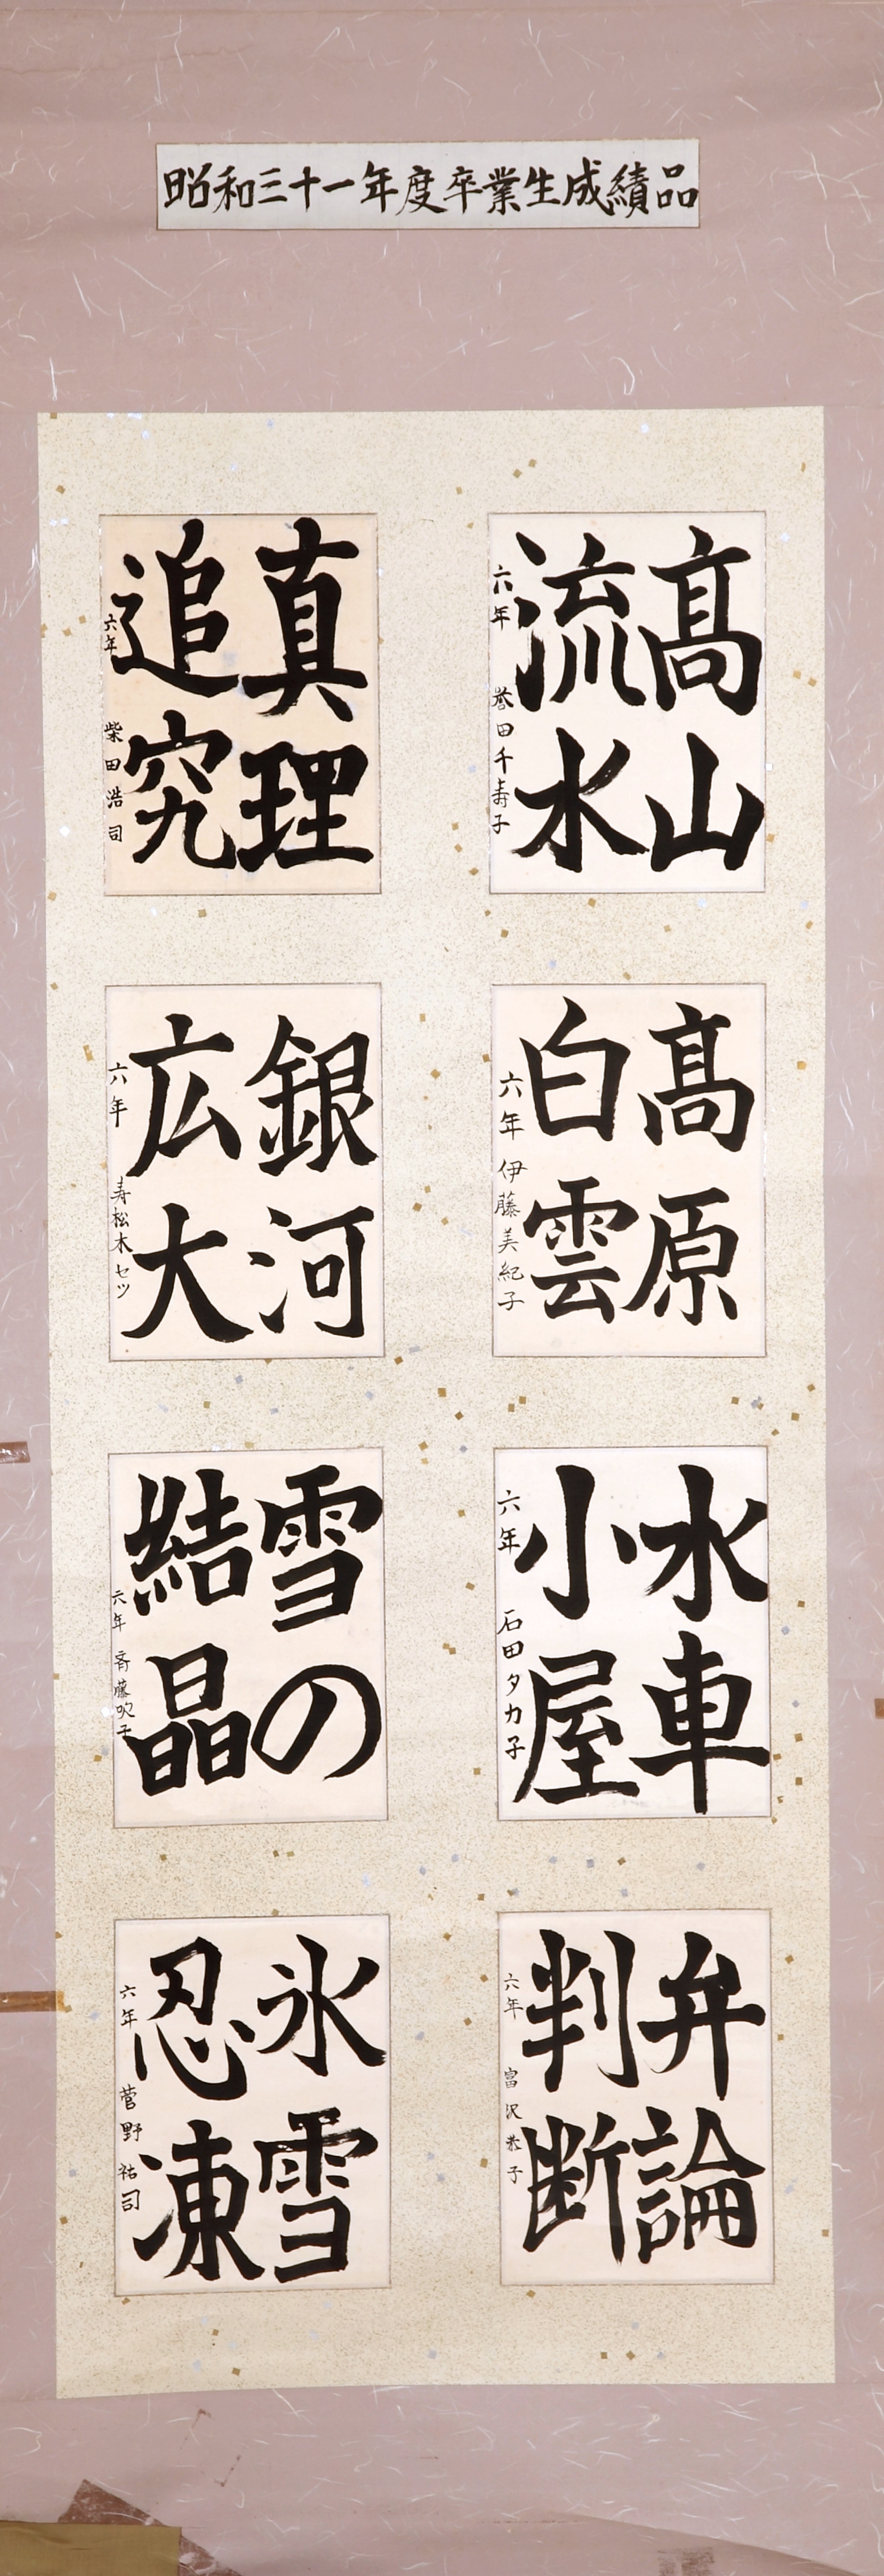 昭和三十一年度卒業生成績品
髙山
流水
六年 誉田千寿子
真理
追究
六年 柴田浩司
髙原
白雲
六年 伊藤美紀子
銀河
広大
六年 寿松木セツ
水車
小屋
六年 石田タカ子
雪の
結晶
六年 斉藤吹子
弁論
判断
六年 富沢恭子
氷雪
忍凍
六年 菅野祐司